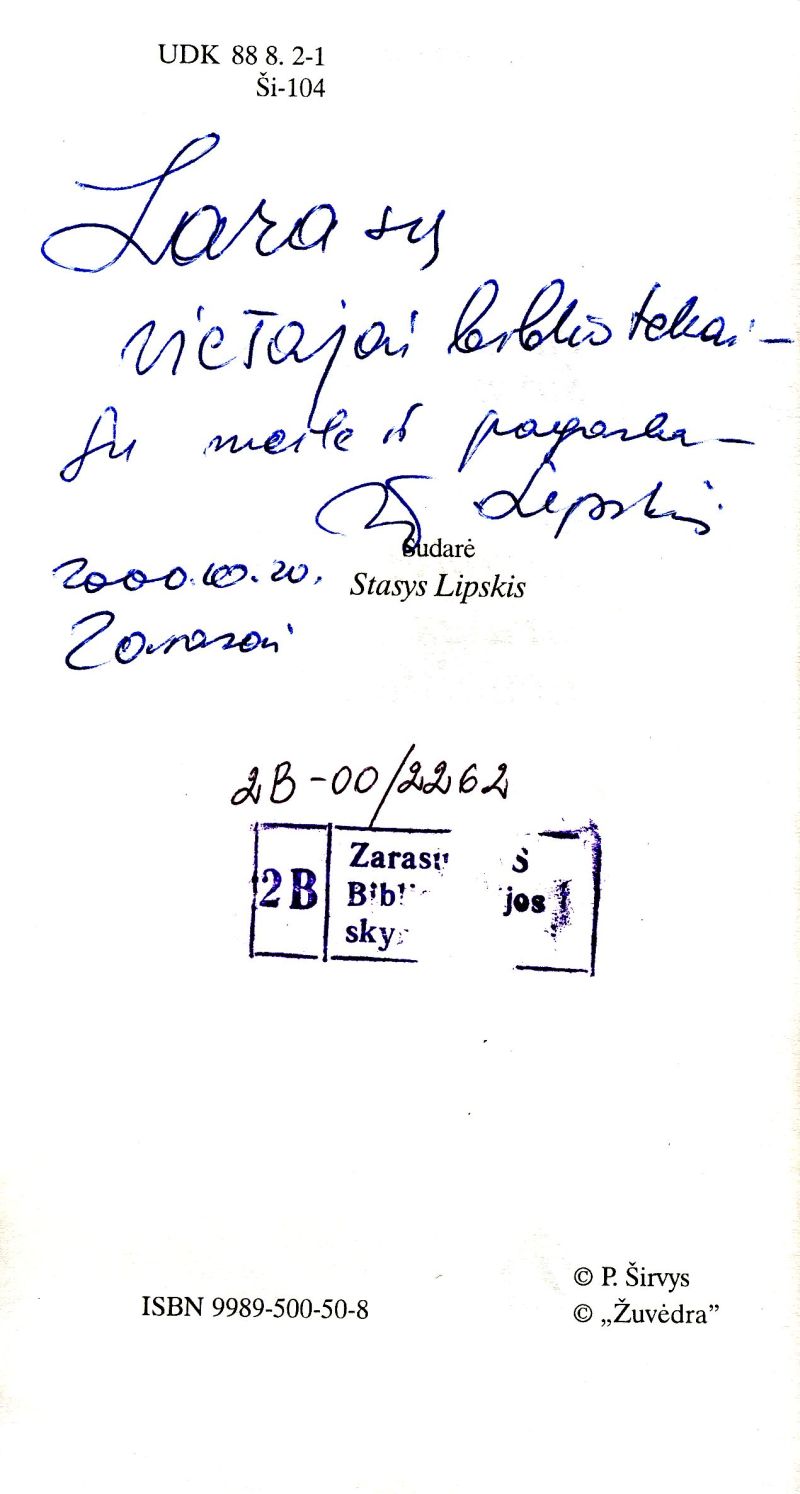 UDK 88 8. 2-1
Ši-104
Zarasų
viešajai bibliotekai –
Su meile ir pagarba –
St Lipskis
Sudarė
2000.10.20.
Stasys Lipskis
Zarasai
2B-00/2262
2B
Zarasų
jos
ISBN 9989-500-50-8
© P. Širvys
© „Žuvėdra”